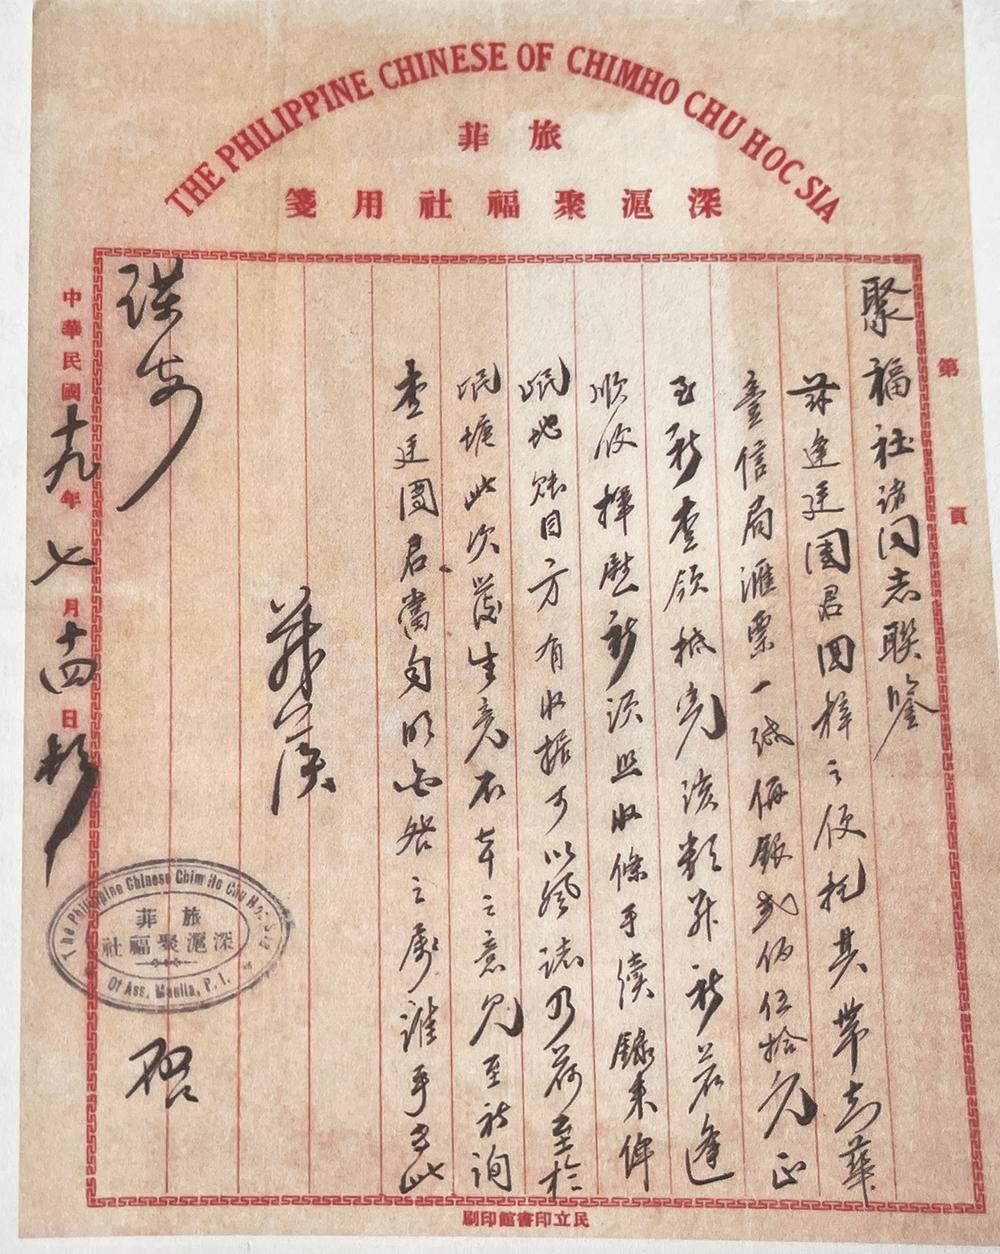 THE PHILIPPINE CHINESE OF CHIMHO CHU HOC SIA
旅菲
深滬聚福社用箋
第 頁
聚福社諸同志聯鑒
茲逢廷國君回梓之便托其帶去華
壹信局滙票一紙伸銀弍佰伍拾元正
至祈查領抵完該款并祈若逢
順收擇慰祈須照收條手續錄來俾
岷地賬目方有收据可以登誌乃荷至於
岷埠此次發生意不幸之意見至祈詢
查廷國君當自明白咎之處誰乎專此
并候
謀安
中華民國十九年七月十四日
The Philippine Chinese Chim Ho Chu Hoc Sia
旅菲
深滬聚福社
Of Ass. Manila, P. I.
啓
民立印書館印刷